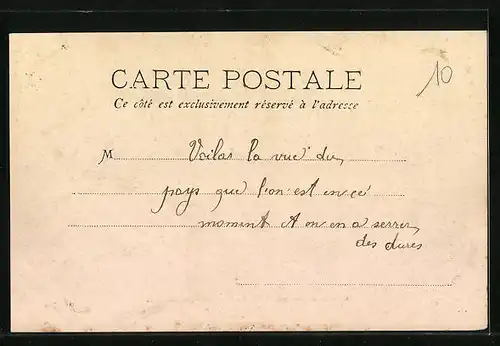 CARTE POSTALE
10
Ce côté est exclusivement réservé à l'adresse
M Voilas la vue du
pays que l'on est en cé
moment et on en a serrer
des dures